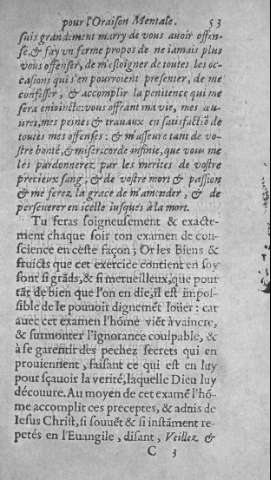 pour l'Oraison Mentale. 53
suis grandement marry de vous auoir offen-
sé, & fay vn ferme propos de ne iamais plus
vous offenser, de m'esloigner de toutes les oc-
casions qui s'en pourroient presenter, de me
confesser, & accomplir la penitence qui me
sera enioincte: vous offrant ma vie, mes œu-
ures, mes peines & trauaux en satisfactiō de
toutes mes offenses: & m'asseure tant de vo-
stre bonté, & misericorde infinie, que vous me
les pardonnerez par les merites de vostre
precieux sang, & de vostre mort & passion
& me ferez la grace de m'amender, & de
perseuerer en icelle iusques à la mort.
Tu feras soigneusement & exacte-
ment chaque soir ton examen de con-
science en ceste façon; Or les biens &
fruicts que cet exercice contient en soy
sont si grāds, & si merueilleux, que pour
tāt de bien que l'on en die, il est impos-
sible de le pouuoir dignemēt loüer: car
auec cet examen l'hōme viēt à vaincre,
& surmonter l'ignorance coulpable, &
à se garentir des pechez secrets qui en
prouiennent, faisant ce qui est en luy
pour sçauoir la verité, laquelle Dieu luy
découure. Au moyen de cet examē l'hō-
me accomplit ces preceptes, & aduis de
Iesus Christ, si souuēt & si instāment re-
petés en l'Euangile, disant, Veillez &
C 3